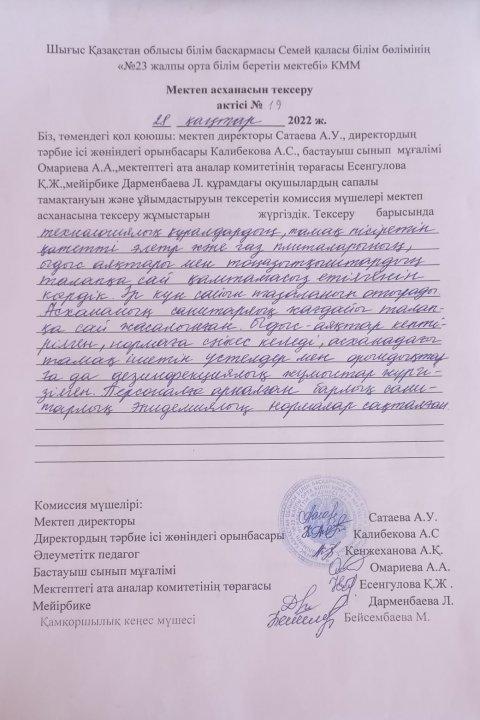 Шығыс Қазақстан облысы білім басқармасы Семей қаласы білім бөлімінің
«№23 жалпы орта білім беретін мектебі» КММ
Мектеп асханасын тексеру
актісі № 19
28 қаңтар 2022 ж.
Біз, төмендегі қол қоюшы: мектеп директоры Сатаева А.У., директордың
тәрбие ісі жөніндегі орынбасары Калибекова А.С., бастауыш сынып мұғалімі
Омариева А.А.,мектептегі ата аналар комитетінің төрағасы Есенгулова
Қ.Ж.,мейірбике Дарменбаева Л. құрамдағы оқушылардың сапалы
тамақтануын және ұйымдастыруын тексеретін комиссия мүшелері мектеп
асханасына тексеру жұмыстарын жүргіздік. Тексеру барысында
технологиялық құралдардың, тамақ пісіретін
қажетті электр және газ плиталарының,
ыдыс аяқтары мен тоңазытқыштардың
талапқа сай қамтамасыз етілгенін
көрдік. Әр күн сайын тазаланып отырады
Асхананың санитарлық жағдайы талап-
қа сай жасалынған. Ыдыс-аяқтар кепті-
рілген, нормаға сәйкес келеді, асханадағы
тамақ ішетін үстелдер мен орындықтар
ға да дезинфекциялық жұмыстар жүргі-
зілген. Персоналға арналған барлық сани-
тарлық эпидемиялық нормалар сақталған
Комиссия мүшелері:
Мектеп директоры Сатаева А.У.
Директордың тәрбие ісі жөніндегі орынбасары Калибекова А.С
Әлеуметітк педагог Кенжеханова А.Қ.
Бастауыш сынып мұғалімі Омариева А.А.
Мектептегі ата аналар комитетінің төрағасы Есенгулова Қ.Ж .
Мейірбике Дарменбаева Л.
Қамқоршылық кеңес мүшесі Бейсембаева М.